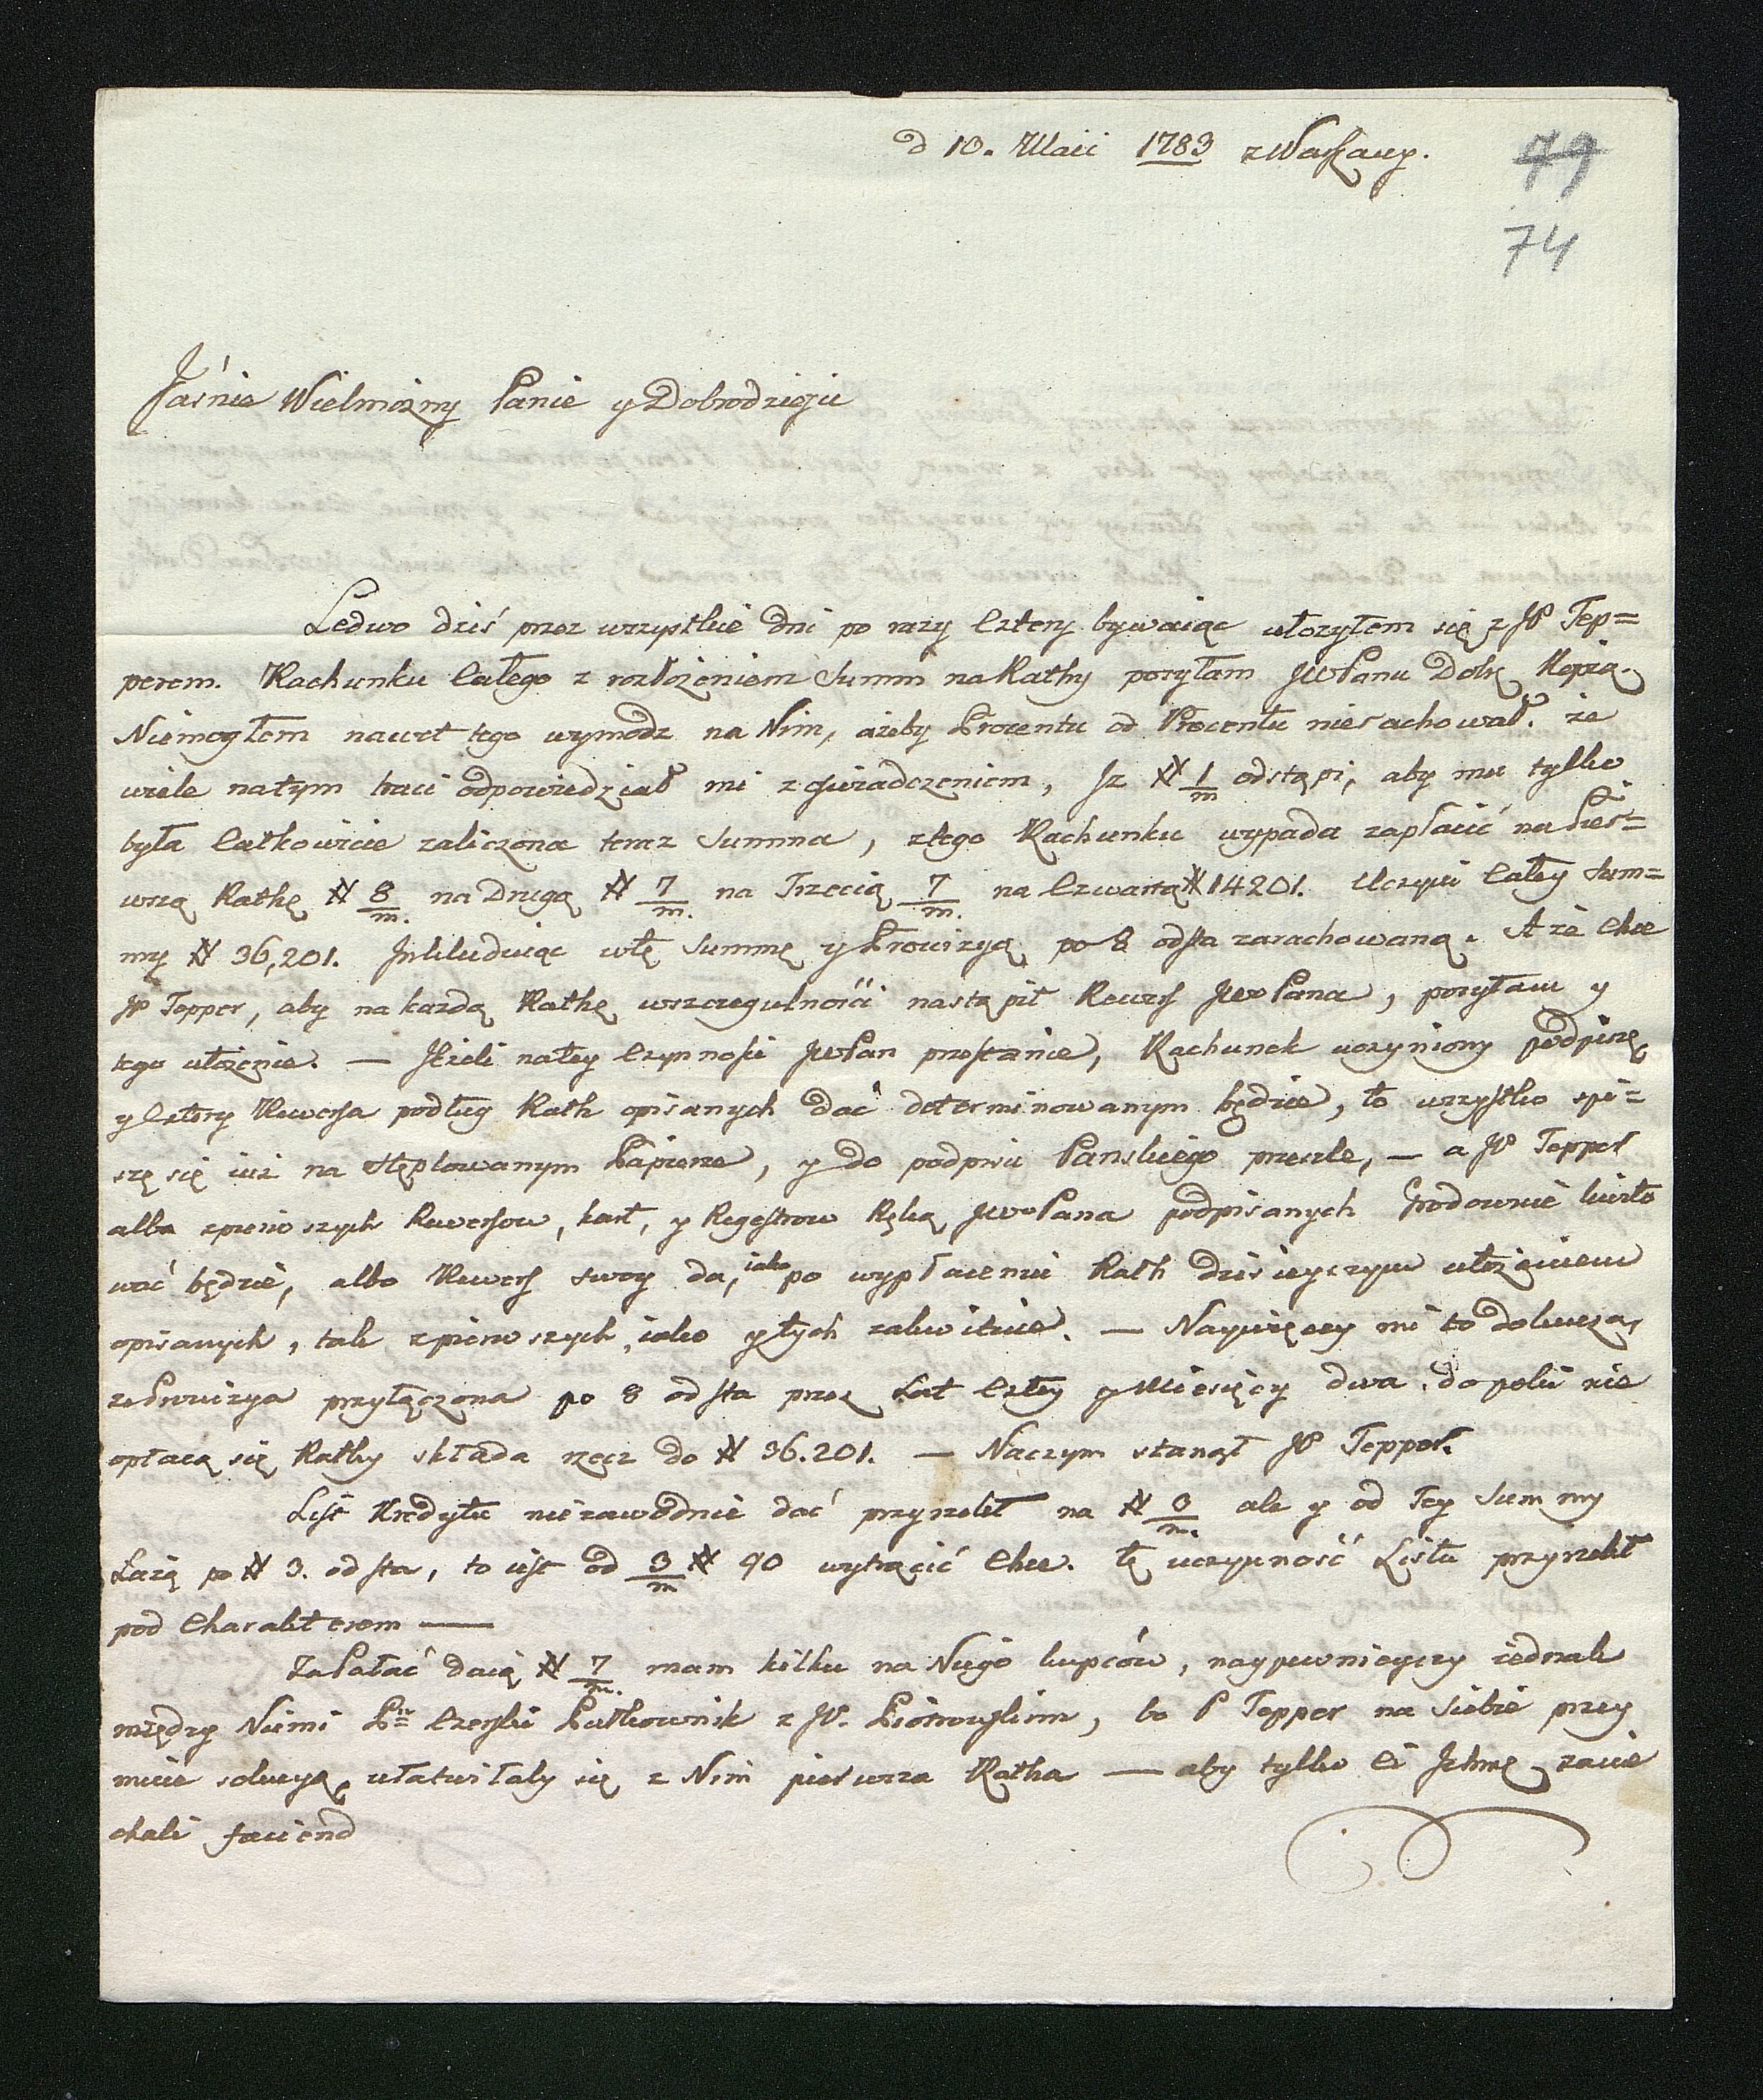 d 10. Maii 1783 z Waszawy.
79
74
Jaśnie Wielmożny Panie y Dobrodzieju
Ledwo dziś przez wszystkie dni po razy cztery bywaiąc ułożyłem się z JP Tep=
perem. Rachunku całego z rozłożeniem Summ na Rathy posyłam JWPanu Dobr Kopią.
Niemogłem nawet tego wymodz na Nim, ażeby Procentu od Procentu nierachował. że
wiele natym traci odpowiedział mi z oświadczeniem, Jz # 1/m odstąpi, aby mu tylko
była całkowicie zaliczona teraz Summa, ztego Rachunku wypada zapłacić na Pier=
wszą Rathę # 8/m. na Drugą # 7/m. na Trzecią 7/m. na Czwartą # 14201. Uczyni całey Sum=
my # 36,201. Inkluduiąc wtę Summę y Prowizyą po 8 odsta zarachowaną. A że chce
JP Tepper, aby na każdą Rathę wszczegulności nastąpił Rewers JWPana, posyłam y
tego ułożenie. — Jeżeli natey czynności JWPan przestanie, Rachunek uczyniony podpiszę
y cztery Rewersa podług Rath opisanych dać determinowanym będzie, to wszystko spi=
szę się iuż na stęplowanym Papierze, y do podpisu Panskiego przeszle, — a JP Tepper
albo zpierwszych Rewersow, kart, y Regestrow Ręką JWPana podpisanych Grodownie kwito
wać będzie, albo Rewers swoy da, iako po wypłaceniu Rath dzisieyszym ułożeniem
opisanych, tak zpierwszych, iako y tych zakwituie. — Naywięcey mi to dokucza,
że Prowizya przyłączona po 8 odsta przez Lat cztery y Miesięcy dwa, dopoki nie
opłacą się Rathy składa rzecz do # 36.201. — Naczym stanął JP Tepper.
List Kredytu niezawodnie dać przyrzekł na # 3/m. ale y od Tey Summy
Lażą po # 3. odsta, to iest od 3/m # 90 wytrącić chce. tę uczynność Listu przyrzekł
pod Charakterem —
Za Pałać daią # 7/m. mam kilku na Niego kupców, naypewnieyszy iednak
między Niemi Pn Czerski Putkownik z JP. Piotrowskim, bo P Tepper na siebie przey
muie solucyą, ułatwiłaby się z Nim pierwsza Ratha — aby tylko ci Jchmę zaie
chali faciend